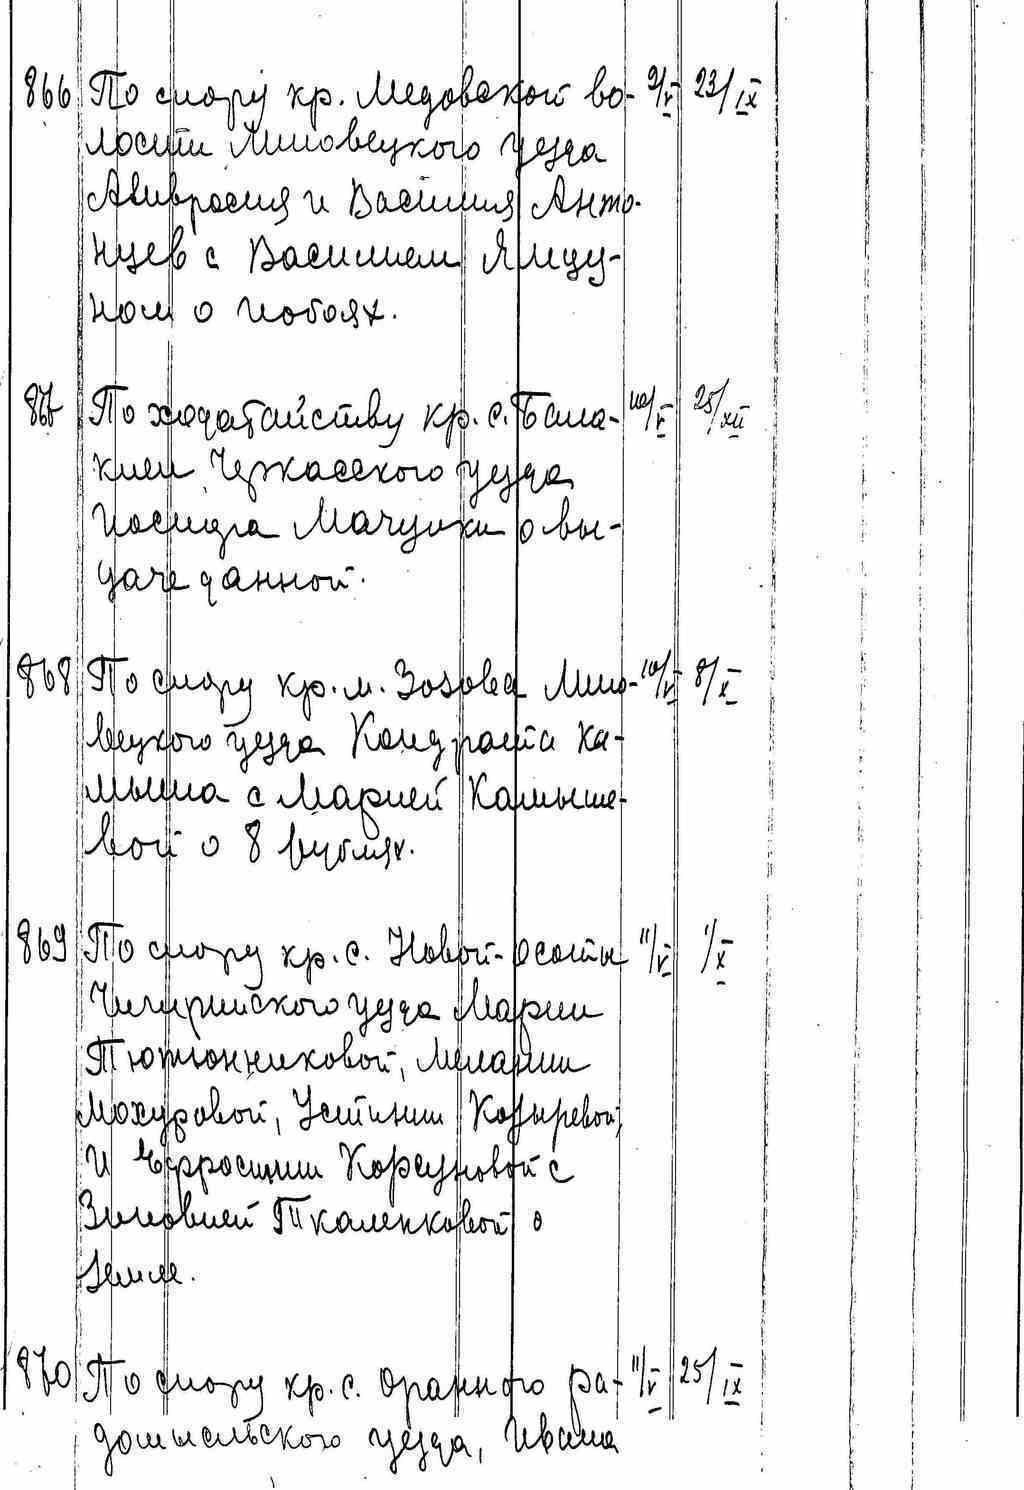 866 По спору кр. Медовской во- 9/V 23/IX
лости Липовецкого уезда
Амвросия и Василия Анто-
нцев с Василием Ямцу-
ном о побоях.
867 По ходатайству кр. с. Бала- 10/V 25/XII
клеи Черкасского уезда
Иосифа Мачушки о вы-
даче данной.
868 По спору кр. м. Зозова Липо- 10/V 8/X
вецкого уезда Кондрата Ка-
мыша с Марией Камыше-
вой о 8 рублях.
869 По спору кр. с. Новой-Осоты 11/V 1/X
Чигиринского уезда Марии
Тютюнниковой, Мелании
Мохуровой, Устинии Козыревой,
и Ефросинии Корсуновой с
Зиновией Ткаленковой о
земле.
870 По спору кр. с. Оранного Ра- 11/V 25/IX
домысльского уезда, Ивана